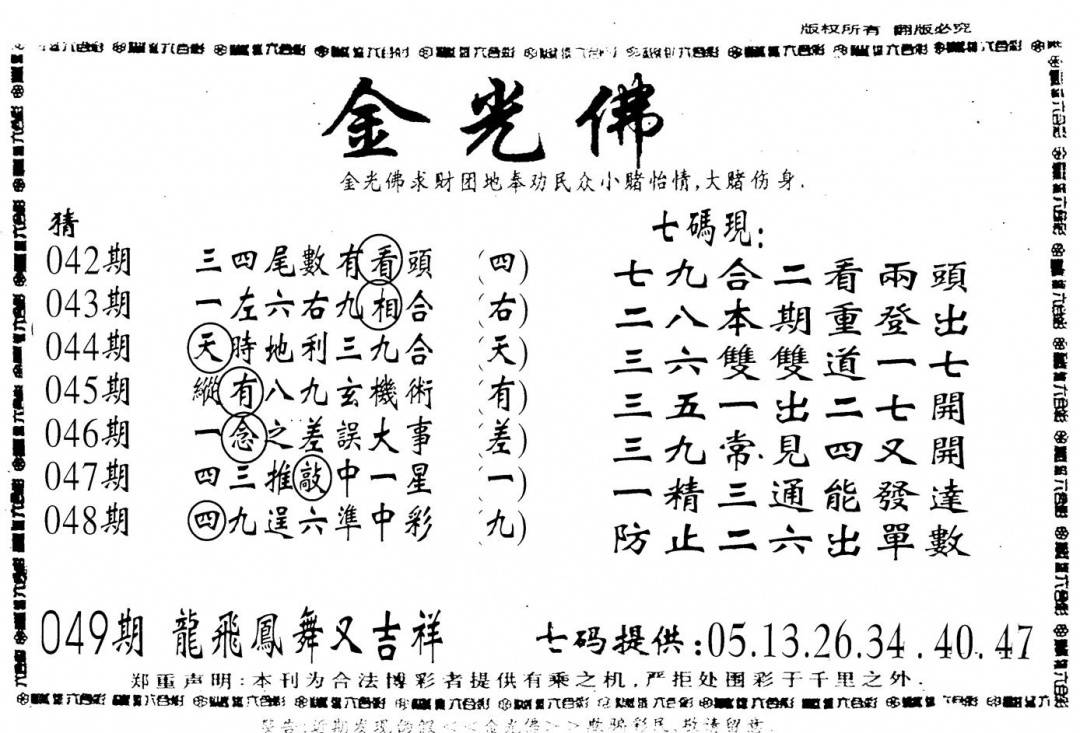 版权所有 翻版必究
金光佛
金光佛求財团地奉劝民众小赌怡情,大赌伤身.
猜
042期 三四尾數有看頭 (四)
043期 一左六右九相合 (右)
044期 天時地利三九合 (天)
045期 縱有八九玄機術 (有)
046期 一念之差誤大事 (差)
047期 四三推敲中一星 (一)
048期 四九逞六準中彩 (九)
七碼現:
七九合二看兩頭
二八本期重登出
三六雙雙道一七
三五一出二七開
三九常見四又開
一精三通能發達
防止二六出單數
049期 龍飛鳳舞又吉祥
七码提供:05.13.26.34.40.47
郑重声明:本刊为合法博彩者提供有乘之机,严拒处围彩于千里之外.
警告:近期发现的假<<金光佛>>欺骗彩民,敬请留意.